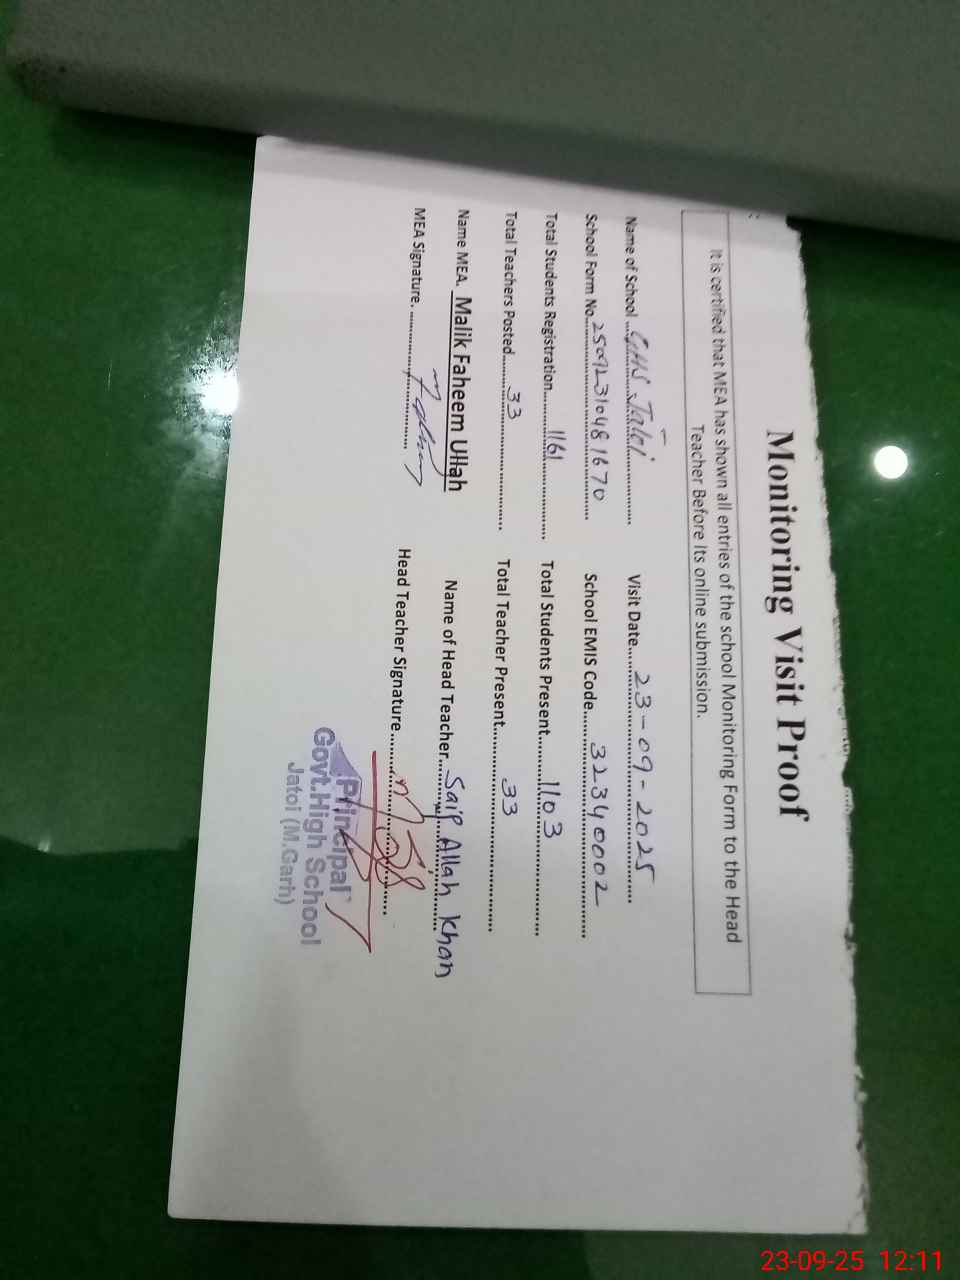 Monitoring Visit Proof
It is certified that MEA has shown all entries of the school Monitoring Form to the Head
Teacher Before its online submission.
Name of School GHS Jatoi Visit Date 23-09-2025
School Form No. School EMIS Code 32340002
Total Students Registration 1161 Total Students Present 1103
Total Teachers Posted 33 Total Teacher Present 33
Name MEA. Malik Faheem Ullah Name of Head Teacher Saif Allah Khan
MEA Signature. Head Teacher Signature
Principal
Govt.High School
Jatoi (M.Garh)
23-09-25 12:11